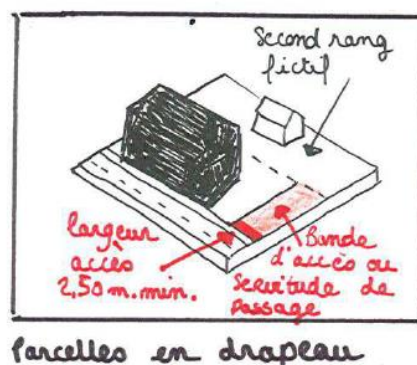 Second rang
fictif
largeur
accès
2,50 m. min.
Bande
d'accès ou
Servitude de
Passage
Parcelles en drapeau